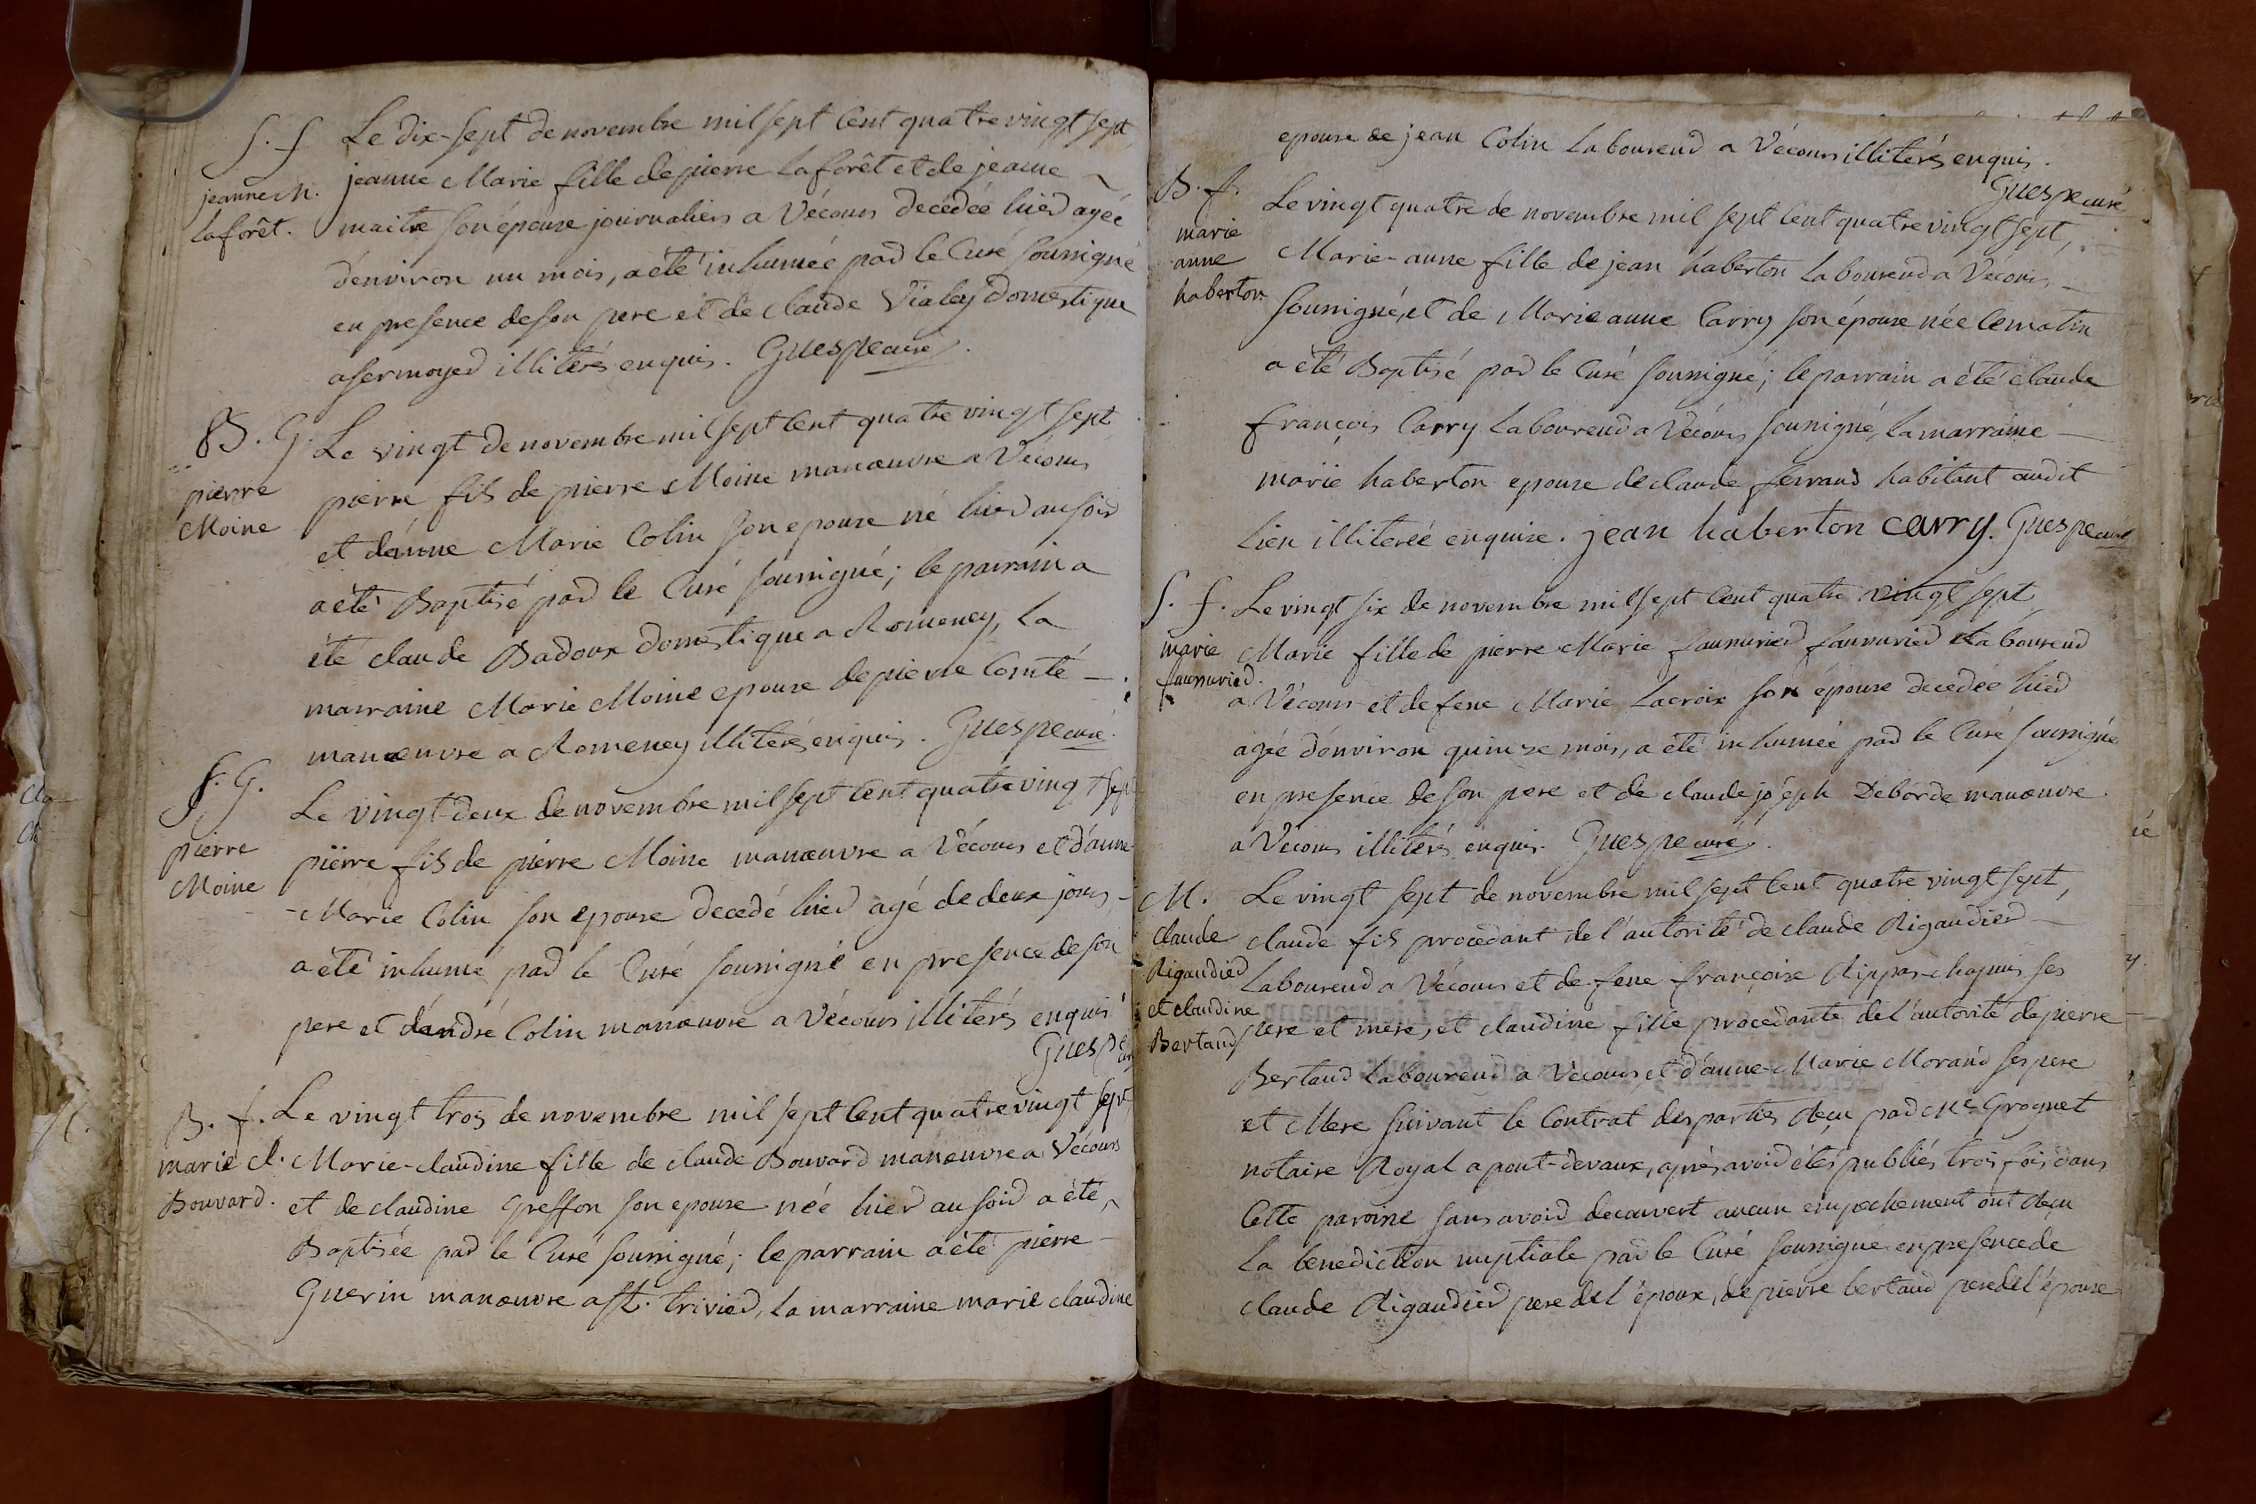 S. f
jeanne M.
laforêt.
Le dix-sept de novembre mil sept cent quatre vingt sept
jeanne Marie fille de pierre laforêt et de jeanne
maitre son épouse journaliers a Vécours decedée hier agée
d'environ un mois, a été inhumée par le Curé soussigné
en presence de son pere et de claude Vialey domestique
a sermoyer illiterés enquis. Guespe curé.
B. G.
pierre
Moine
Le vingt de novembre mil sept cent quatre vingt sept
pierre fils de pierre Moine manœuvre a Vécours
et d'anne Marie Colin son epouse né hier au soir
a été Baptisé par le Curé soussigné; le parrain a
été claude Badoux domestique a Romeney, la
marraine Marie Moine epouse de pierre Comté
manœuvre a Romeney illiterés enquis. Guespe curé.
S. G.
pierre
Moine
Le vingt-deux de novembre mil sept cent quatre vingt sept
pierre fils de pierre Moine manœuvre a Vécours et d'anne
Marie Colin son epouse decedé hier agé de deux jours
a été inhumé par le Curé soussigné en presence de son
pere et d'andré Colin manœuvre a Vécours illiterés enquis
Guespe curé
B. f.
marie cl.
Bouvard.
Le vingt trois de novembre mil sept cent quatre vingt sept
Marie-claudine fille de claude Bouvard manœuvre a Vécours
et de claudine Greffon son epouse née hier au soir a été
Baptisée par le Curé soussigné; le parrain a été pierre
Guerin manœuvre a st. trivier, la marraine marie claudine
epouse de jean Colin laboureur a Vécours illiterés enquis.
Guespe curé
B. f.
marie
anne
haberton
Le vingt quatre de novembre mil sept cent quatre vingt sept,
Marie-anne fille de jean haberton laboureur a Vécours
soussigné, et de Marie anne Carry son épouse née ce matin
a été Baptisé par le Curé soussigné; le parrain a été claude
françois Carry laboureur a Vécours soussigné, la marraine
marie haberton epouse de claude ferrand habitant audit
lieu illiterée enquise. jean haberton carry. Guespe curé
S. f.
marie
faunurier.
Le vingt six de novembre mil sept cent quatre vingt sept
Marie fille de pierre Marie faunurier faunurier laboureur
a Vécours et de feue Marie Lacroix son épouse decedée hier
agée d'environ quinze mois, a été inhumée par le Curé soussigné
en presence de son pere et de claude joseph Deborde manœuvre
a Vécours illiterés enquis. Guespe curé.
M.
claude
Rigaudier
et claudine
Bertaud
Le vingt sept de novembre mil sept cent quatre vingt sept,
claude fils procedant de l'autorité de claude Rigaudier
laboureur a Vécours et de feue françoise Rippas-chapuis ses
pere et mere, et claudine fille procedante de l'autorité de pierre
Bertaud laboureur a Vécours et d'anne-Marie Morand ses pere
et Mere suivant le Contrat des parties reçu par me Grognet
notaire Royal a pont-devaux, après avoir étés publiés trois fois dans
Cette paroisse sans avoir decouvert aucun empechement ont reçu
la benediction nuptiale par le Curé soussigné en presence de
claude Rigaudier pere de l'époux, de pierre bertaud pere de l'épouse